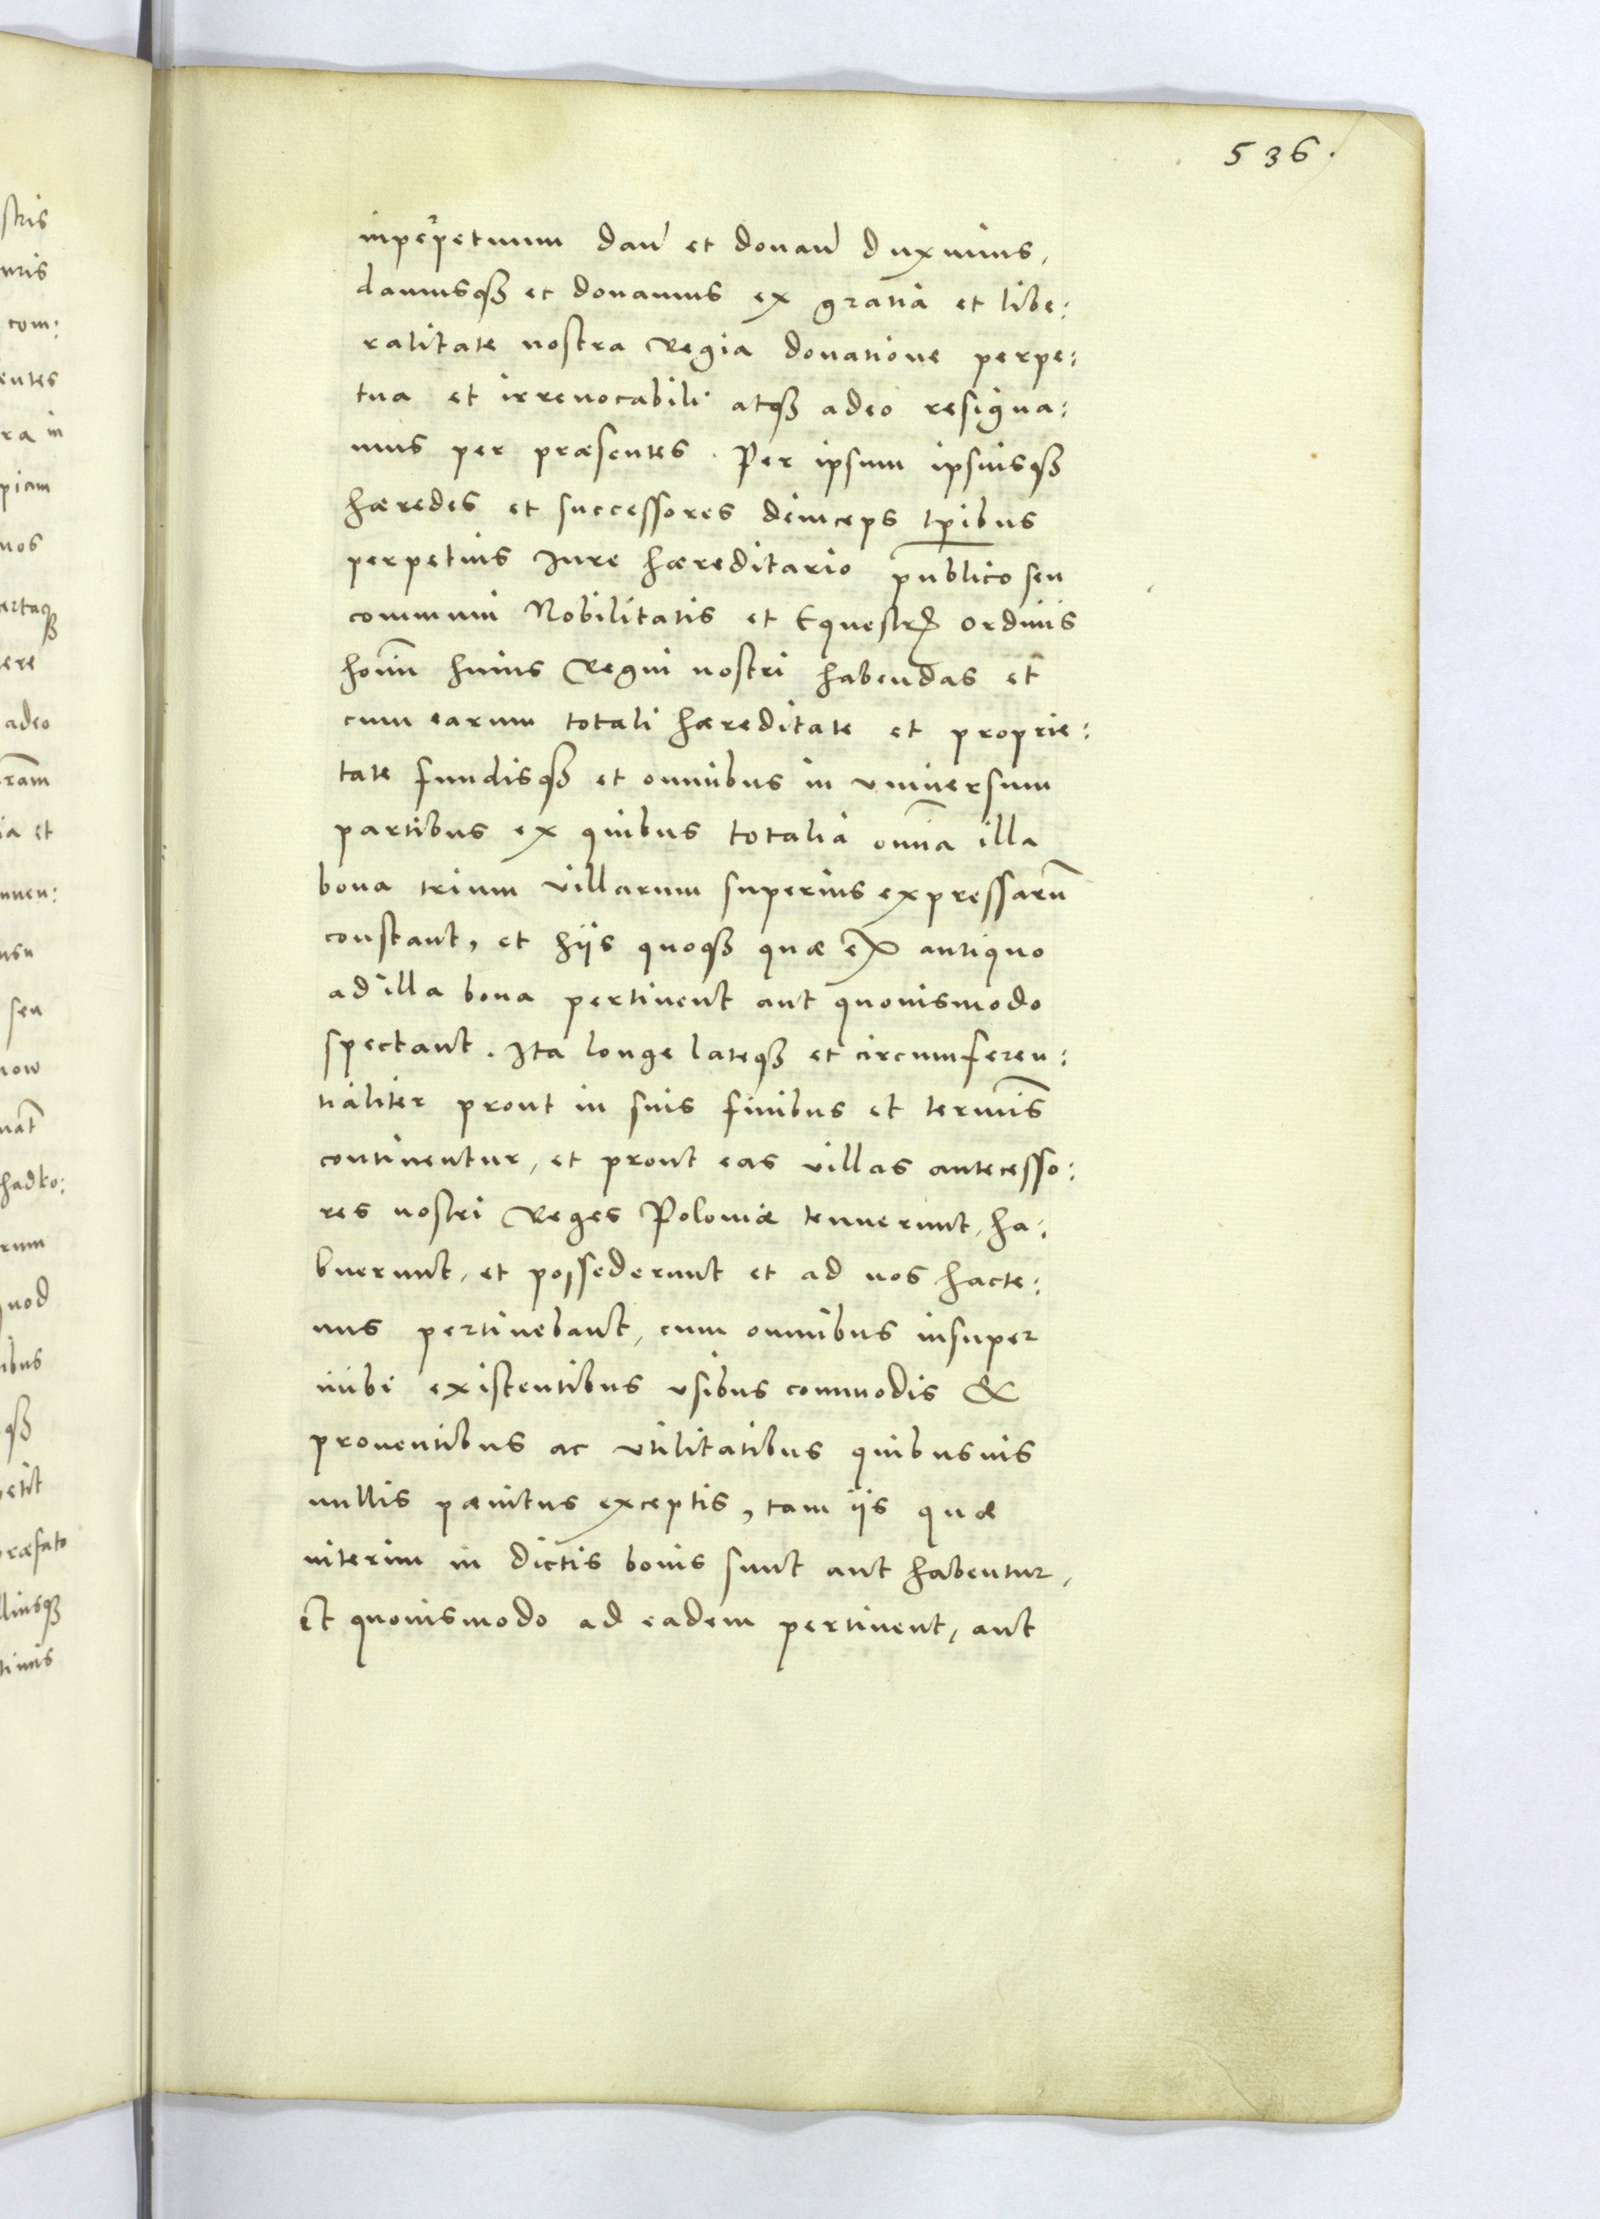 536.
inperpetuum dan̄ et donan̄ duximus,
damusq3 et donamus ex gratia et libe:
ralitate nostra Regia donatione perpe:
tua et irrevocabili atq3 adeo resigna:
mus per præsentes. Per ipsum ipsiusq3
hæredes et successores deinceps tp̄ibus
perpetuis Iure hæreditario publico seu
communi Nobilitatis et Equestr̄ ordinis
hoīm huius Regni nostri habendas et
cum earum totali hæreditate et proprie:
tate fundisq3 et omnibus in vniuersum
partibus ex quibus totalia om̄ia illa
bona trium villarum superius expressarū
constant, et hijs quoq3 quæ ex antiquo
ad illa bona pertinent aut quouismodo
spectant. Ita longe lateq3 et circumferen:
tialiter prout in suis finibus et termīs
continentur, et prout eas villas antecesso:
res nostri Reges Poloniæ tenuerunt, ha:
buerunt, et possederunt et ad nos hacte:
nus pertinebant, cum omnibus insuper
inibi existentibus vsibus commodis &
prouentibus ac vtilitatibus quibusuis
nullis pænitus exceptis, tam ijs quæ
interim in dictis bonis sunt aut habentur,
et quouismodo ad eadem pertinent, aut